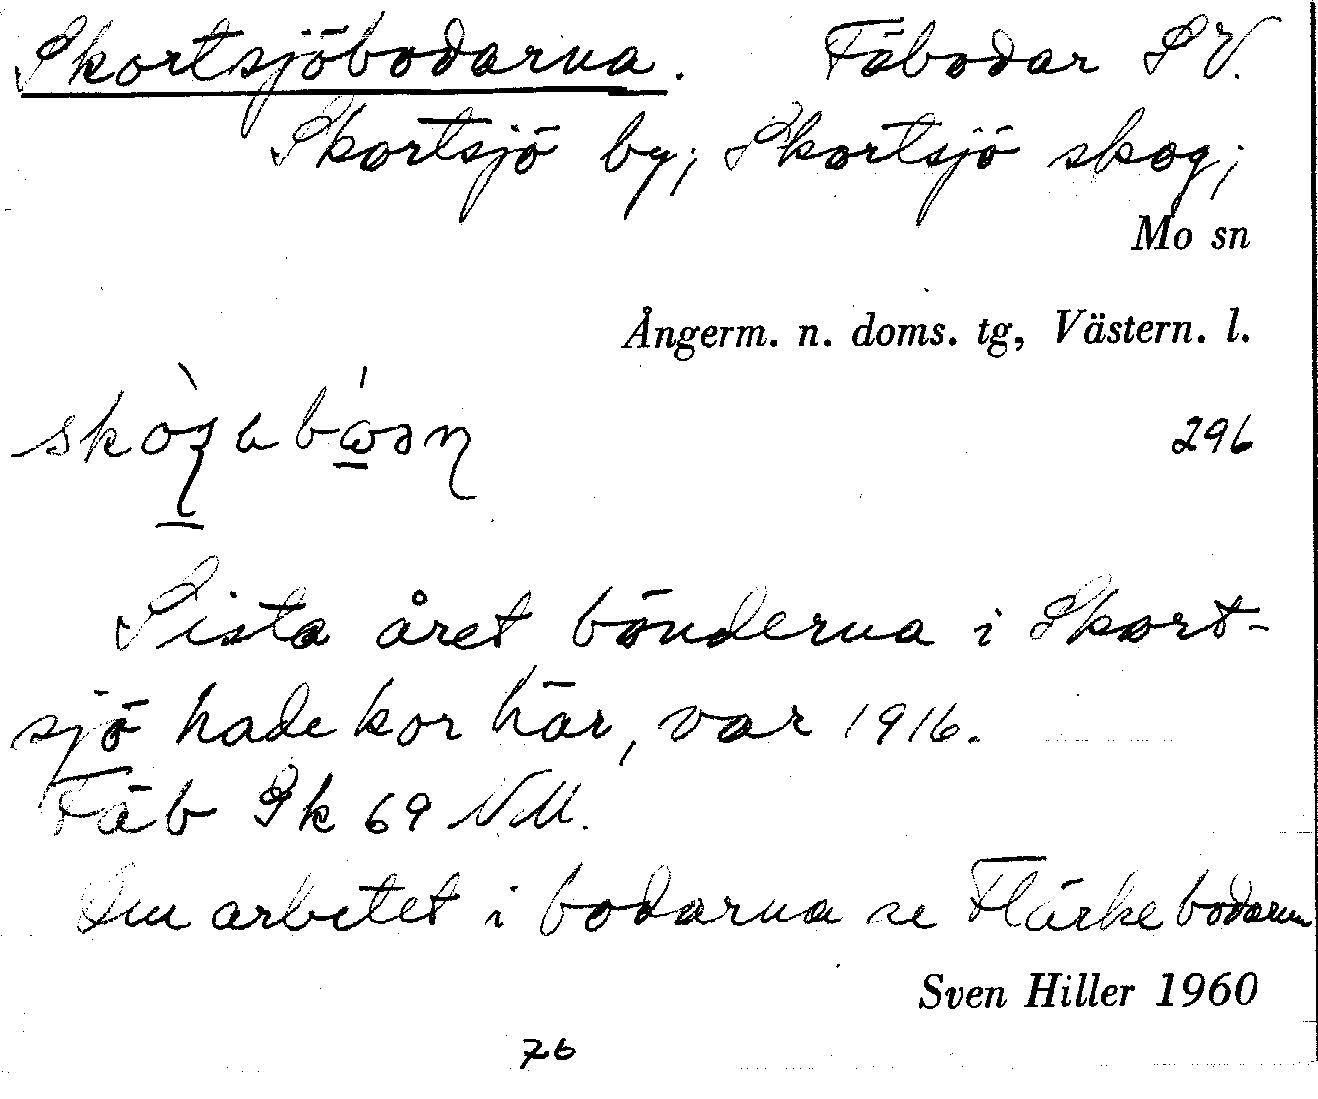 Skortsjöbodarna. Fäbodar SV.
Skortsjö by; Skortsjö skog;
Mo sn
Ångerm. n. doms. tg, Västern. l.
296
Sista året bönderna i Skort-
sjö hade kor här, var 1916.
Fäb Sk 69 NM.
Om arbetet i bodarna se Flärkebodarna
Sven Hiller 1960
76